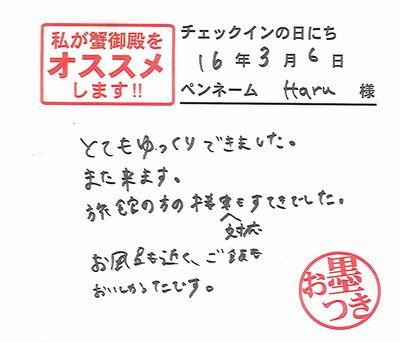 私が蟹御殿を
オススメ
します!!
チェックインの日にち
16年3月6日
ペンネーム Haru 様
とてもゆっくりできました。
また来ます。
旅館の方の もすてきでした。
対応
お風呂も近く、ご飯も
おいしかったです。
お墨つき